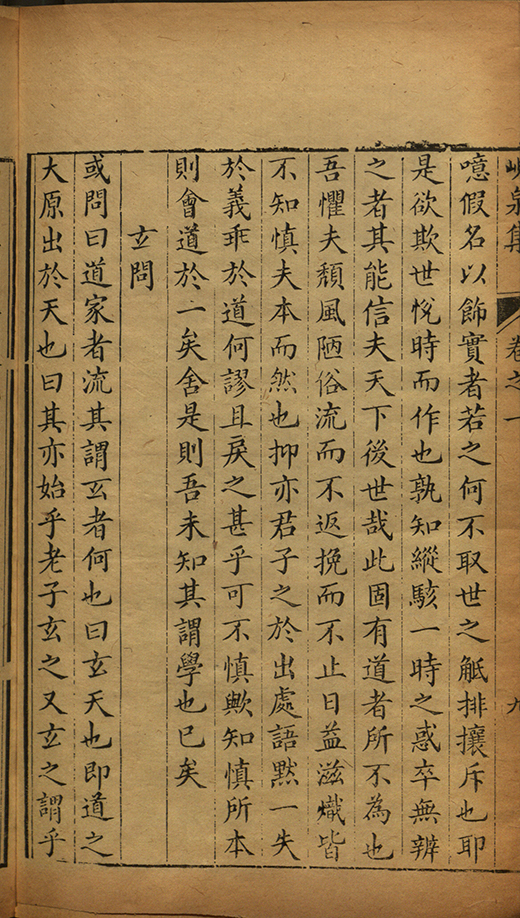 峴泉集 卷之一 九
噫假名以飾實者若之何不取世之觝排攘斥也耶
是欲欺世悅時而作也孰知縱駭一時之惑卒無辨
之者其能信夫天下後世哉此固有道者所不為也
吾懼夫頹風陋俗流而不返挽而不止日益滋熾皆
不知慎夫本而然也抑亦君子之於出處語默一失
於義乖於道何謬且戾之甚乎可不慎歟知慎所本
則會道於一矣舍是則吾未知其謂學也已矣
玄問
或問曰道家者流其謂玄者何也曰玄天也即道之
大原出於天也曰其亦始乎老子玄之又玄之謂乎